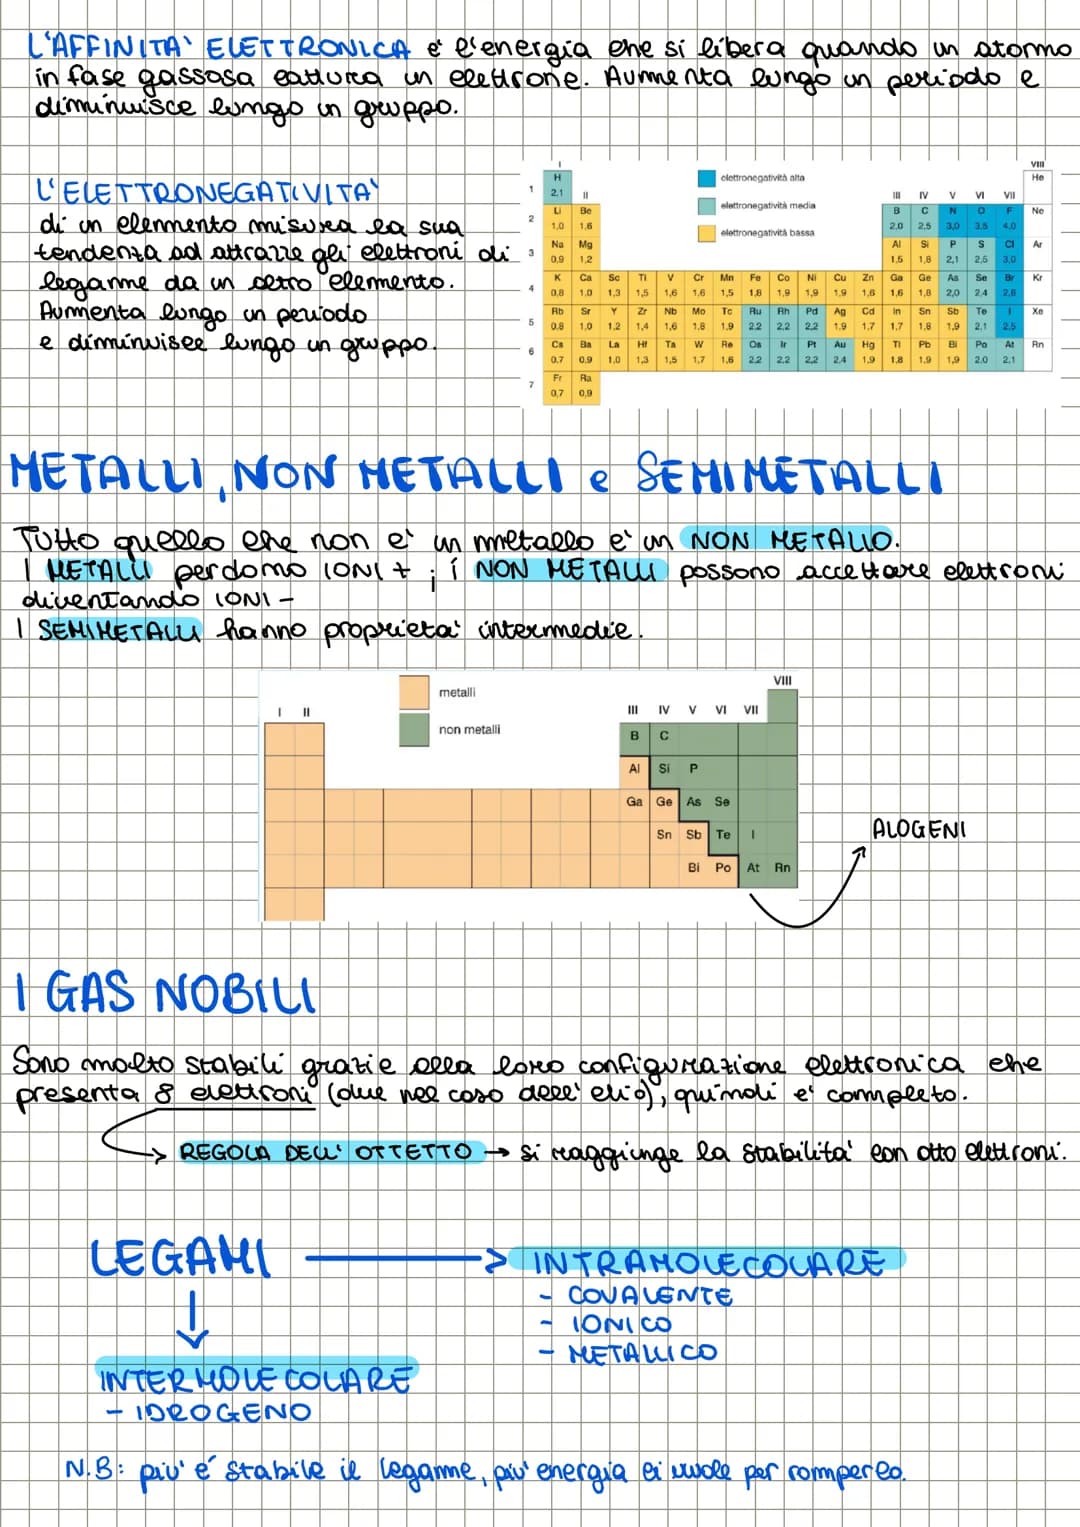 L'AFFINITA' ELETTRONICA e' l'energia che si libera quando un atomo
in fase gassosa cattura un elettrone. Aumenta lungo un periodo e
diminuisce lungo un gruppo.
L'ELETTRONEGATIVITA'
di un elemento misura la sua
tendenza ad attrarre gli elettroni di
legame da un altro elemento.
Aumenta lungo un periodo
e diminuisce lungo un gruppo.
elettronegatività alta
elettronegatività media
elettronegatività bassa
I II III IV V VI VII VIII
1 H He
2,1
2 Li Be B C N O F Ne
1,0 1,6 2,0 2,5 3,0 3,5 4,0
3 Na Mg Al Si P S Cl Ar
0,9 1,2 1,5 1,8 2,1 2,5 3,0
4 K Ca Sc Ti V Cr Mn Fe Co Ni Cu Zn Ga Ge As Se Br Kr
0,8 1,0 1,3 1,5 1,6 1,6 1,5 1,8 1,9 1,9 1,9 1,6 1,6 1,8 2,0 2,4 2,8
5 Rb Sr Y Zr Nb Mo Tc Ru Rh Pd Ag Cd In Sn Sb Te I Xe
0,8 1,0 1,2 1,4 1,6 1,8 1,9 2,2 2,2 2,2 1,9 1,7 1,7 1,8 1,9 2,1 2,5
6 Cs Ba La Hf Ta W Re Os Ir Pt Au Hg Tl Pb Bi Po At Rn
0,7 0,9 1,0 1,3 1,5 1,7 1,6 2,2 2,2 2,2 2,4 1,9 1,8 1,9 1,9 2,0 2,1
7 Fr Ra
0,7 0,9
METALLI, NON METALLI e SEMIMETALLI
Tutto quello che non e' un metallo e' un NON METALLO.
I METALLI perdono IONI + ; i NON METALLI possono accettare elettroni
diventando IONI -
I SEMIMETALLI hanno proprieta' intermedie.
metalli
non metalli
I II III IV V VI VII VIII
B C
Al Si P
Ga Ge As Se
Sn Sb Te I
Bi Po At Rn
ALOGENI
I GAS NOBILI
Sono molto stabili grazie alla loro configurazione elettronica che
presenta 8 elettroni (due nel caso dell'elio), quindi e' completo.
REGOLA DELL'OTTETTO → si raggiunge la stabilita' con otto elettroni.
LEGAMI → INTRAMOLECOLARE
- COVALENTE
- IONICO
- METALLICO
INTERMOLECOLARE
- IDROGENO
N.B: piu' e' stabile il legame, piu' energia ci vuole per romperlo.